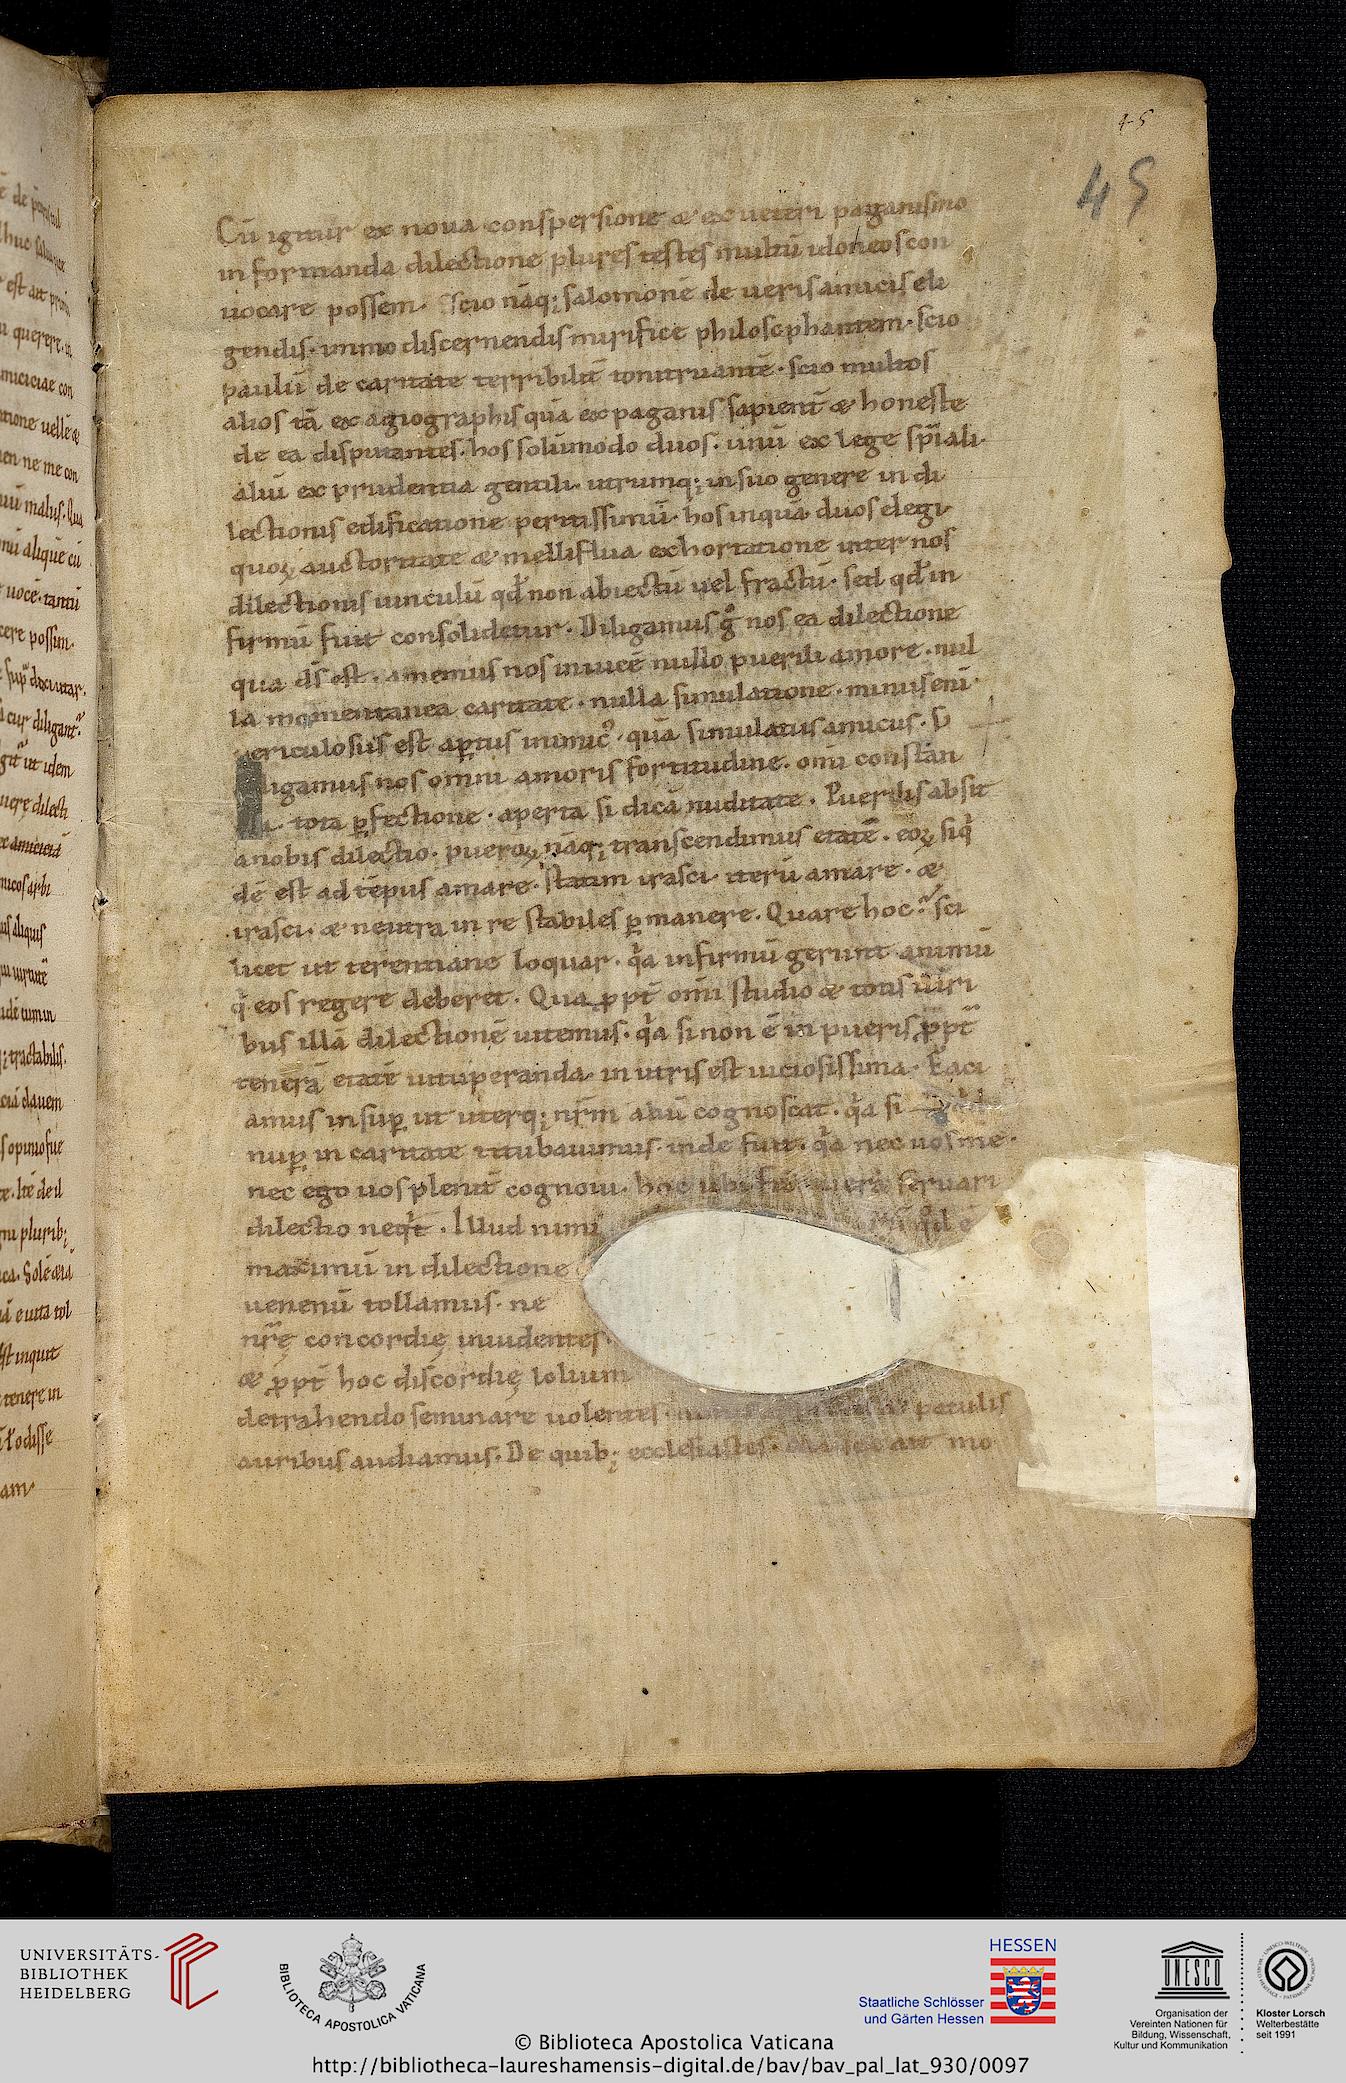 45
45
Cū igitur ex noua conspersione & ex ueteri paganismo
informanda dilectione plures testes multū idoneos con
uocare possem. Scio nāq; salomonē de ueris amicis eli
gendis. immo discernendis mirifice philosophantem. scio
paulū de caritate terribilit̄ tonitruantē. scio multos
alios tā ex agiographis quā ex paganis sapient̄ & honeste
de ea disputantes. hos solūmodo duos. unū ex lege sp̄iali.
aliū ex prudentia gentili. utrumq; in suo genere in di
lectionis edificatione peritissimū. hos inquā duos elegi.
quoꝝ auctoritate & melliflua exhortatione inter nos
dilectionis uinculū qd̄ non abiectū uel fractū. sed qd̄ in
firmū fuit consolidetur. Diligamus gͦ nos ea dilectione
qua ds̄ est. amemus nos inuicē nullo puerili amore. nul
la momentanea caritate. nulla simulatione. minus enī
periculosus est aꝑtus inimicꝰ. quā simulatus amicus. D
ligamus nos omni amoris fortitudine. om̄i constan
tota ꝑfectione. aperta si dicā nuditate. Puerilis absit
a nobis dilectio. pueroꝝ nāq; transcendimus etatē. eoꝝ siq̇
dē est ad tēpus amare. statim irasci. iterū amare. &
irasci. & neutra in re stabiles ꝑmanere. Quare hoc? sci
licet ut terentiane loquar. q̇a infirmū gerunt animū
q̇ eos regere deberet. Qua ꝓpt̄ om̄i studio & totis uiri
bus illā dilectionē uitemus. q̇a si non ē in pueris ꝓpt̄
tenerā etatē uituperanda. in uiris est uiciosissima. Faci
amus insuꝑ ut uterq; nr̄m aliū cognoscat. q̇a si
nuꝑ in caritate titubauimus. inde fuit. q̇a nec uos me.
nec ego uos plenit̄ cognoui. hoc ubi uera seruari
dilectio neq̇t. Illud nimi qd̄ ē
maximū in dilectione
uenenū tollamus. ne
nr̄ę concordię inuidentes
& ꝓpt̄ hoc discordię lolium
detrahendo seminare uolentes patulis
auribus audiamus. De quib; ecclesiastes. ait mo
UNIVERSITÄTS-
BIBLIOTHEK
HEIDELBERG
BIBLIOTECA APOSTOLICA VATICANA
HESSEN
Staatliche Schlösser
und Gärten Hessen
UNESCO
Organisation der
Vereinten Nationen für
Bildung, Wissenschaft,
Kultur und Kommunikation
Kloster Lorsch
Welterbestätte
seit 1991
© Biblioteca Apostolica Vaticana
http://bibliotheca-laureshamensis-digital.de/bav/bav_pal_lat_930/0097